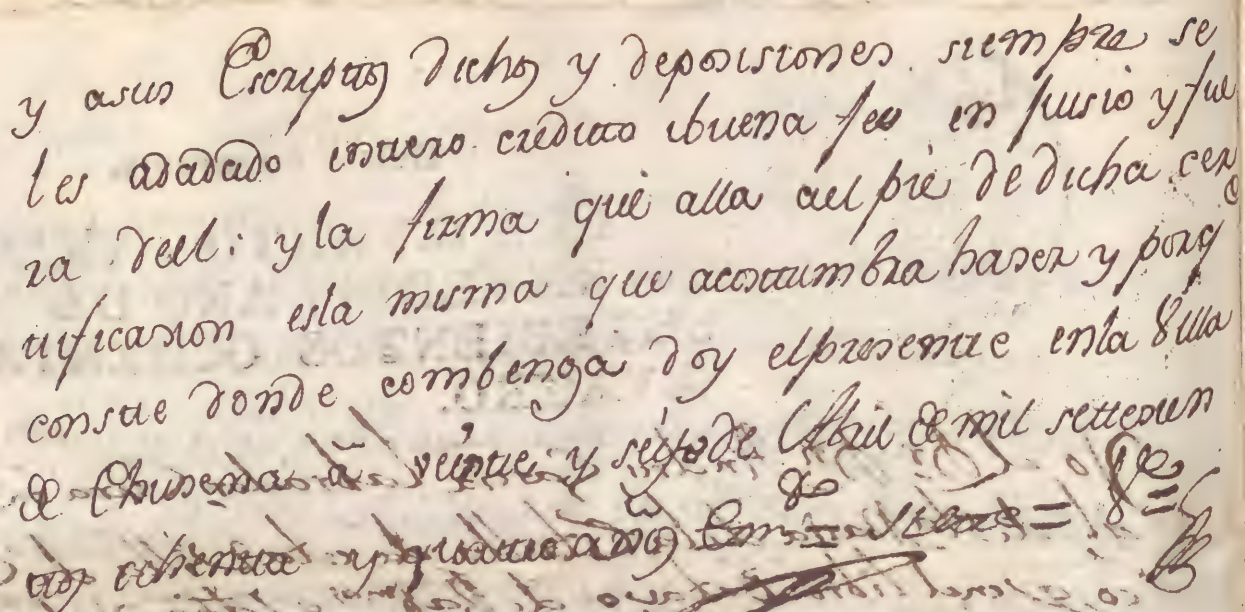 y asus Escriptos dichos y deposisiones siempre se
les adadado entero credito ibuena fee en Jusio y fue
ra deel: y la firma que alla al pie de dicha cer
tificasion esla misma que acostumbra haser y porq
conste donde combenga doy elpresente enla Villa
de Chusena a veinte y seis de Abril de mil settesien
tos ochenta y quatro años Em.do = =